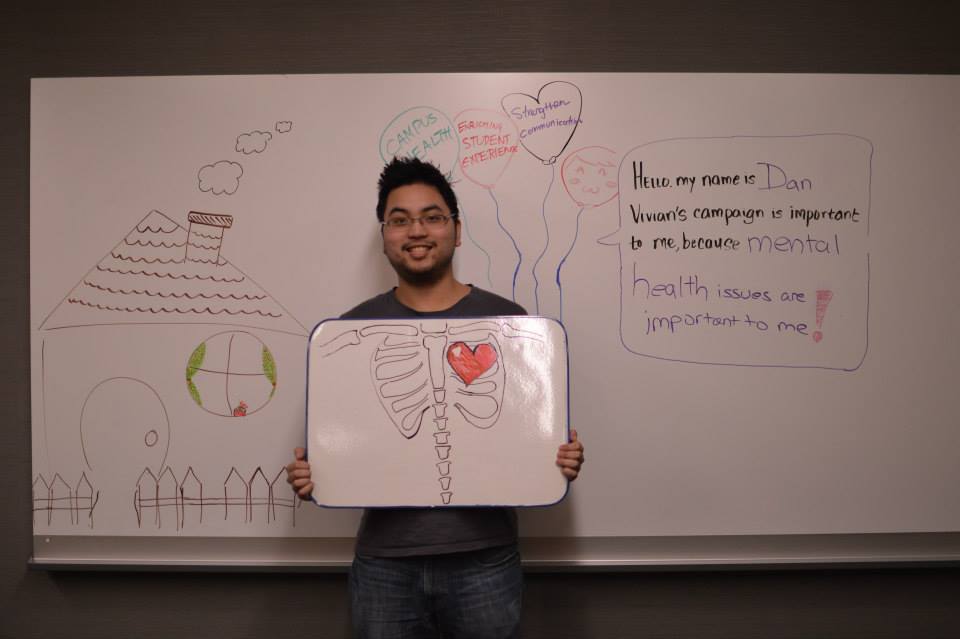 CAMPUS
HEALTH
ENRICHING
STUDENT
EXPERIENCE
Strengthen
Communication
HELLO. my name is Dan
Vivian's campaign is important
to me, because mental
health issues are
important to me!